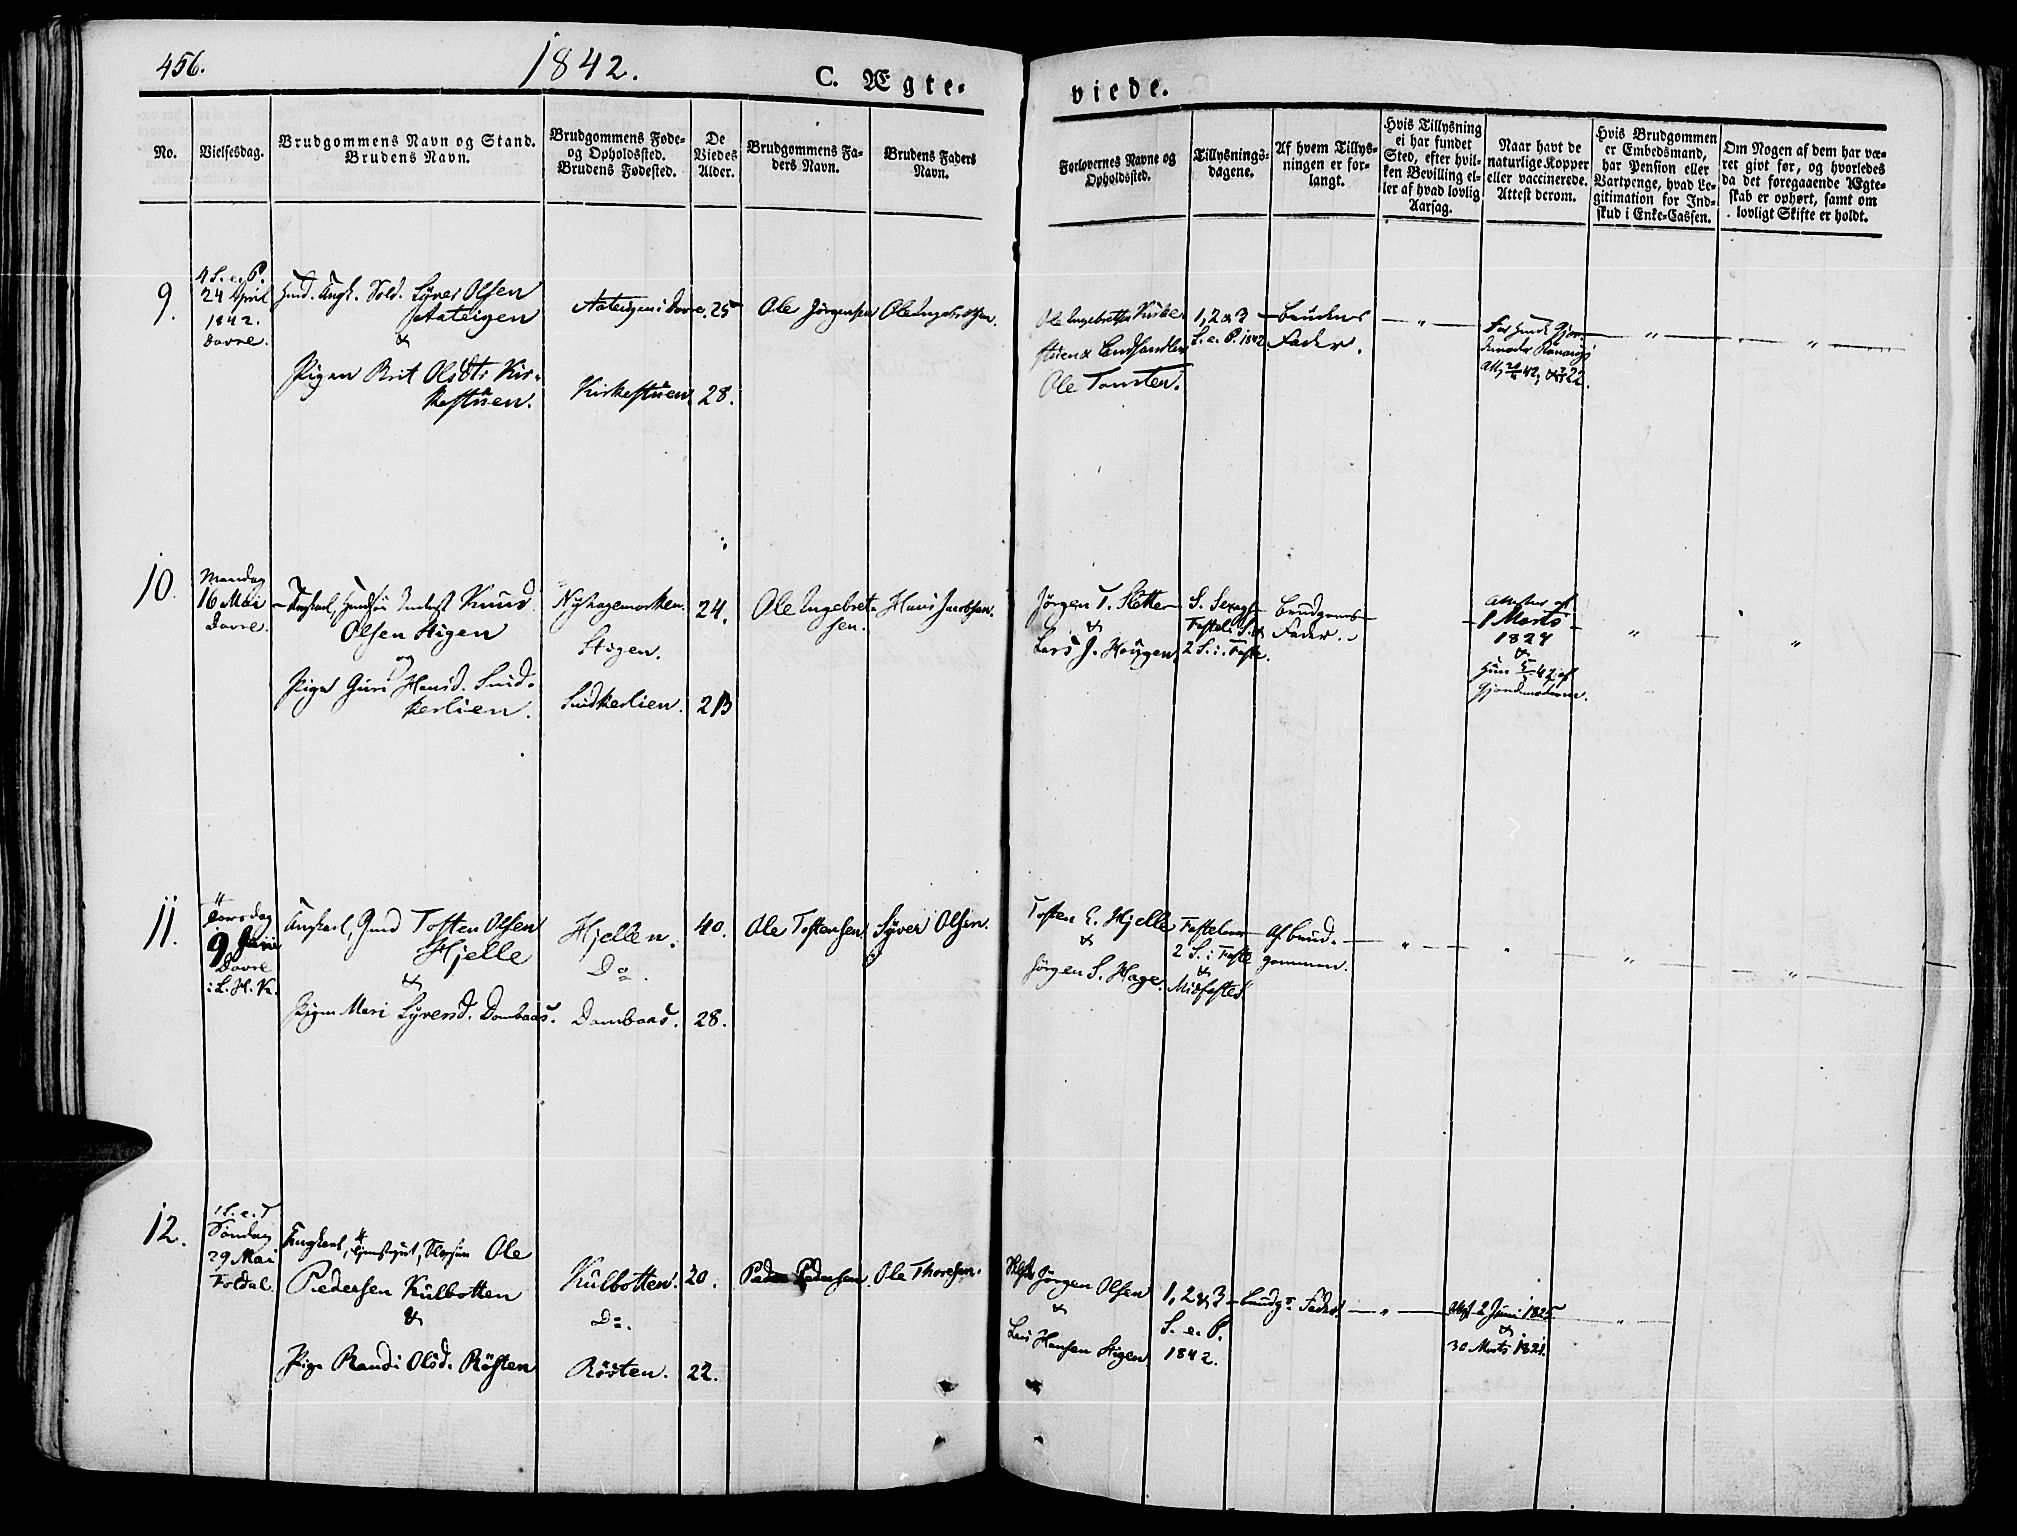 456.
1842.
C. Ægte-
viede.
No.
Vielsesdag.
Brudgommens Navn og Stand.
Brudens Navn.
Brudgommens Føde-
og Opholdssted.
Brudens Fødested.
De
Viedes
Alder.
Brudgommens Fa-
ders Navn.
Brudens Faders
Navn.
Forlovernes Navne og
Opholdssted.
Tillysnings-
dagene.
Af hvem Tillys-
ningen er for-
langt.
Hvis Tillysning
ei har fundet
Sted, efter hvil-
ken Bevilling el-
ler af hvad lovlig
Aarsag.
Naar havt de
naturlige Kopper
eller vaccinerede.
Attest derom.
Hvis Brudgommen
er Embedsmand,
har Pension eller
Vartpenge, hvad Le-
gitimation for Ind-
skud i Enke-Cassen.
Om Nogen af dem har væ-
ret givt før, og hvorledes
da det foregaaende Ægte-
skab er ophørt, samt om
lovligt Skifte er holdt.
9.
4 S. e. P.
24 April
1842.
Dovre.
Sold. Syver Olsen
Aateigen
&
Pigen Brit Olsdtr Kir-
kestuen.
Aateigen i Dovre.
Kirkestuen.
25
28.
Ole Jörgensen
Ole Ingebretsen.
Ole Ingebretsen Kirke-
stuen & Landhandler
Ole Tofsten.
1, 2 & 3
S. e. P. 1842.
Brudens
Fader.
10.
Mandag
16 Mai
Dovre.
Knud
Olsen Stigen
og
Pige Guri Hansd. Snid-
kerlien.
Nyhagemorken.
Stigen.
Snidkerlien.
24.
Ole Ingebret-
sen.
Hans Jacobsen.
Jörgen T. Slette
&
Lars J. Haugen.
S. Sexag.
Fastel. S. &
2 S. i. Faste.
Brudgoms
Fader.
Attester af
1 Marts
1824
&
11.
Torsdag
9 Juni
Dovre
i L. H. K.
Ungkarl, Gmd Tosten Olsen
Hjelle
&
Pigen Mari Syversd. Dombaas.
Hjellen.
Do.
Dombaas.
40.
28.
Ole Tostensen
Syver Olsen.
Tosten E. Hjelle
&
Jörgen S. Hage.
Fastelavn
2 S. i Faste
&
Midfaste S.
Af Brud-
gommen.
12.
1 S. e. T
Söndag
29 Mai
Foldal.
Ungkarl, Ole
Pedersen Kulbotten
&
Pige Randi Olsd. Rösten
Kulbotten.
Do.
Rösten.
20.
22.
Peder Pedersen.
Ole Thoresen.
Jörgen Olsen
&
Lars Hansen Stigen
1, 2 & 3
S. e. P.
1842.
Brudgs. Fader.
Att. 2 Juni 1825
&
30 Marts 1821.